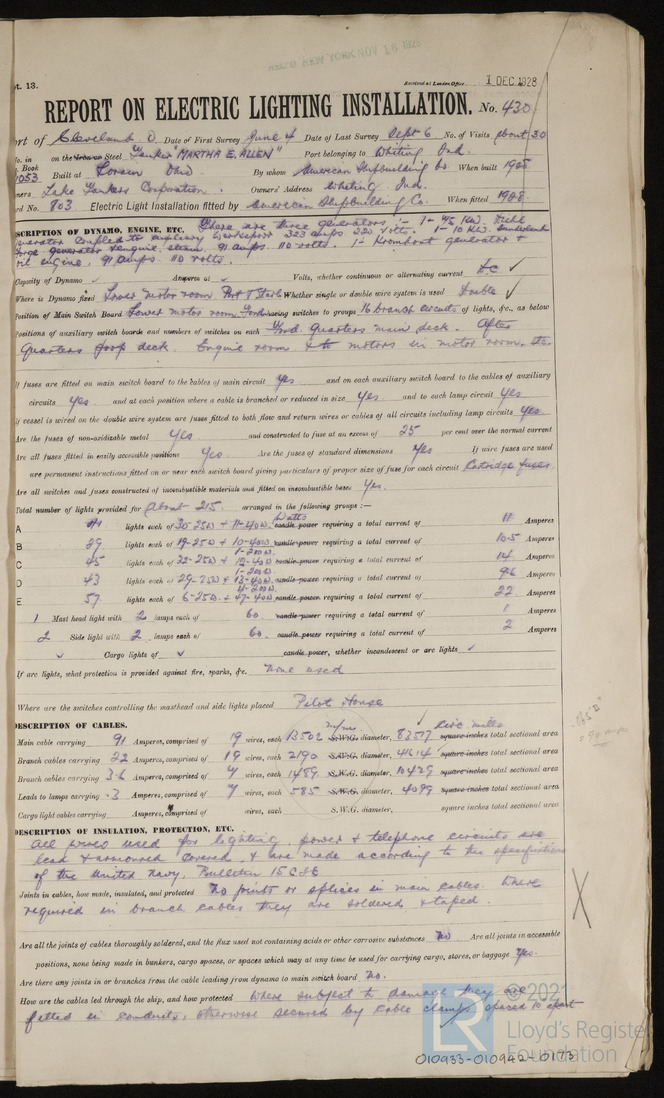 RECD NEW YORK NOV 16 1928
Pt. 13.
Received at London Office 1 DEC 1928
REPORT ON ELECTRIC LIGHTING INSTALLATION. No. 430
Port of Cleveland O. Date of First Survey June 4 Date of Last Survey Sept 6 No. of Visits about 30
No. in on the Iron or Steel Tanker "MARTHA E. ALLEN" Port belonging to Whiting Ind.
Book
Built at Lorain Ohio By whom American Shipbuilding Co When built 1928
Owners Lake Tankers Corporation. Owners' Address Whiting. Ind.
Yard No. 803 Electric Light Installation fitted by American Shipbuilding Co. When fitted 1928.
DESCRIPTION OF DYNAMO, ENGINE, ETC. There are three generators :- 1- 75 KW. Diehl
generator coupled to auxiliary 323 amps 220 volts. 1- 10 KW.
generator & engine, steam. 91 amps. 110 volts. 1- Kromhout generator &
oil engine. 91 amps. 110 volts.
Capacity of Dynamo ✓ Amperes at ✓ Volts, whether continuous or alternating current DC ✓
Where is Dynamo fixed Lower motor room Port & Starb Whether single or double wire system is used Double ✓
Position of Main Switch Board Lower motor room Ford having switches to groups 16 branch circuits of lights, &c., as below
Positions of auxiliary switch boards and numbers of switches on each Ford. Quarters main deck. After
Quarters poop deck. Engine room & to motors in motor room, etc
If fuses are fitted on main switch board to the cables of main circuit yes and on each auxiliary switch board to the cables of auxiliary
circuits yes and at each position where a cable is branched or reduced in size yes and to each lamp circuit yes
If vessel is wired on the double wire system are fuses fitted to both flow and return wires or cables of all circuits including lamp circuits yes
Are the fuses of non-oxidizable metal yes and constructed to fuse at an excess of 25 per cent over the normal current
Are all fuses fitted in easily accessible positions Yes Are the fuses of standard dimensions yes If wire fuses are used
are permanent instructions fitted on or near each switch board giving particulars of proper size of fuse for each circuit Cartridge fuses
Are all switches and fuses constructed of incombustible materials and fitted on incombustible bases Yes.
Total number of lights provided for about 215. arranged in the following groups :—
A 41 lights each of 30-25W + 11-40W. Watts candle-power requiring a total current of 11 Amperes
B 29 lights each of 19-25W + 10-40W. candle-power requiring a total current of 10.5 Amperes
1-200W.
C 45 lights each of 32-25W + 12-40W candle-power requiring a total current of 14 Amperes
1-200W.
D 43 lights each of 29-25W + 13-40W. candle-power requiring a total current of 9.6 Amperes
E 57 lights each of 6-25W. + 47-40W candle-power requiring a total current of 22 Amperes
1 Mast head light with 2 lamps each of 60 candle-power requiring a total current of 1 Amperes
2 Side light with 2 lamps each of 60. candle-power requiring a total current of 2 Amperes
✓ Cargo lights of ✓ candle-power, whether incandescent or arc lights ✓
If arc lights, what protection is provided against fire, sparks, &c. None used
Where are the switches controlling the masthead and side lights placed Pilot House
DESCRIPTION OF CABLES.
Main cable carrying 91 Amperes, comprised of 19 wires, each S.W.G. diameter, 83517 circ mills square inches total sectional area
Branch cables carrying 22 Amperes, comprised of 19 wires, each S.W.G. diameter, square inches total sectional area
Branch cables carrying 3.6 Amperes, comprised of 7 wires, each S.W.G. diameter, 10429 square inches total sectional area
Leads to lamps carrying .3 Amperes, comprised of 7 wires, each 585 S.W.G. diameter, 4099 square inches total sectional area
Cargo light cables carrying Amperes, comprised of wires, each S.W.G. diameter, square inches total sectional area
DESCRIPTION OF INSULATION, PROTECTION, ETC.
All wires used for lighting, power & telephone circuits are
lead & armoured covered, & are made according to the specifications
of the United Navy, Bulletin 15 C 86
Joints in cables, how made, insulated, and protected No joints or splices in main cables. Where
required in branch cables they are soldered & taped.
Are all the joints of cables thoroughly soldered, and the flux used not containing acids or other corrosive substances No Are all joints in accessible
positions, none being made in bunkers, cargo spaces, or spaces which may at any time be used for carrying cargo, stores, or baggage Yes.
Are there any joints in or branches from the cable leading from dynamo to main switch board No.
How are the cables led through the ship, and how protected Where subject to damage they are
fitted in conduits, otherwise secured by cable clamps spaced 10" apart
© 2021
Lloyd's Register
Foundation
010933-010942-0173